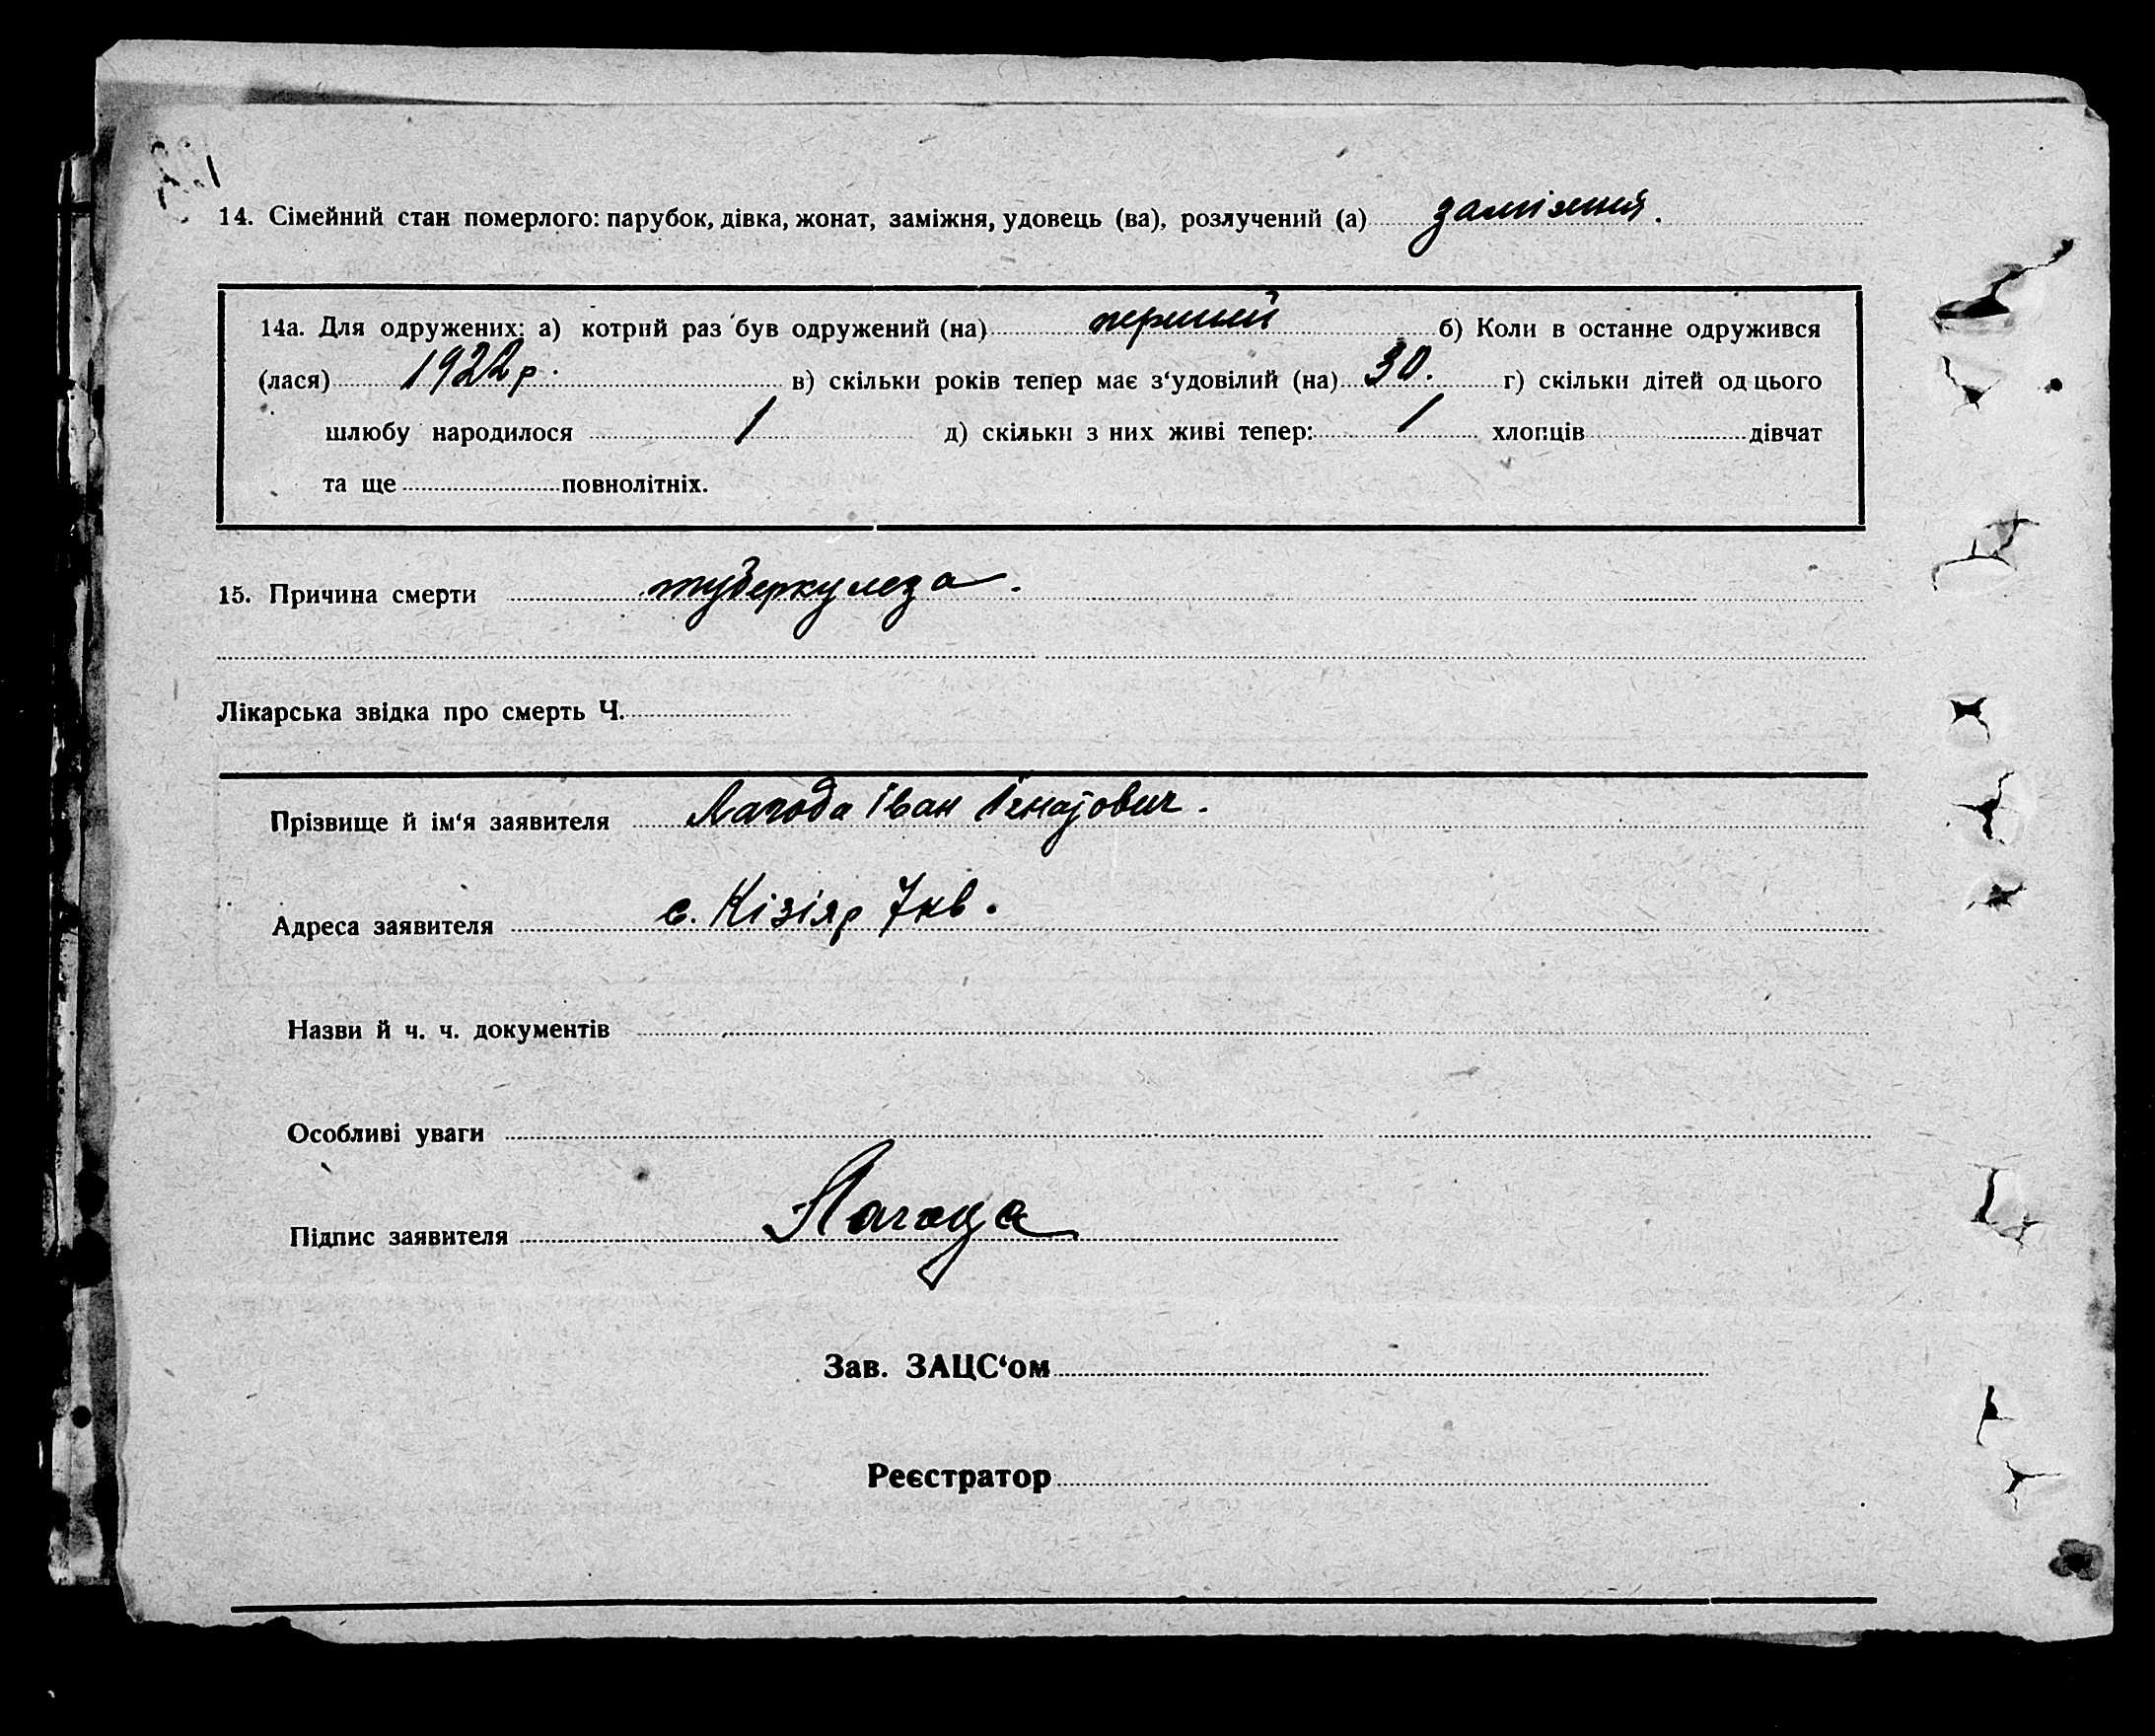 14. Сімейний стан померлого: парубок, дівка, жонат, заміжня, удовець (ва), розлучений (а) заміжня.
14а. Для одружених: а) котрий раз був одружений (на) перший б) Коли в останне одружився
(лася) 1922 р. в) скільки років тепер має з‘удовілий (на) 30. г) скільки дітей од цього
шлюбу народилося 1 д) скільки з них живі тепер: 1 хлопців дівчат
та ще повнолітніх.
15. Причина смерти туберкулеза.
Лікарська звідка про смерть Ч.
Прізвище й ім‘я заявителя Лагода Іван Ігнатович.
Адреса заявителя с. Кізіяр 7 кв.
Назви й ч. ч. документів
Особливі уваги
Підпис заявителя Лагода
Зав. ЗАЦС‘ом
Реєстратор